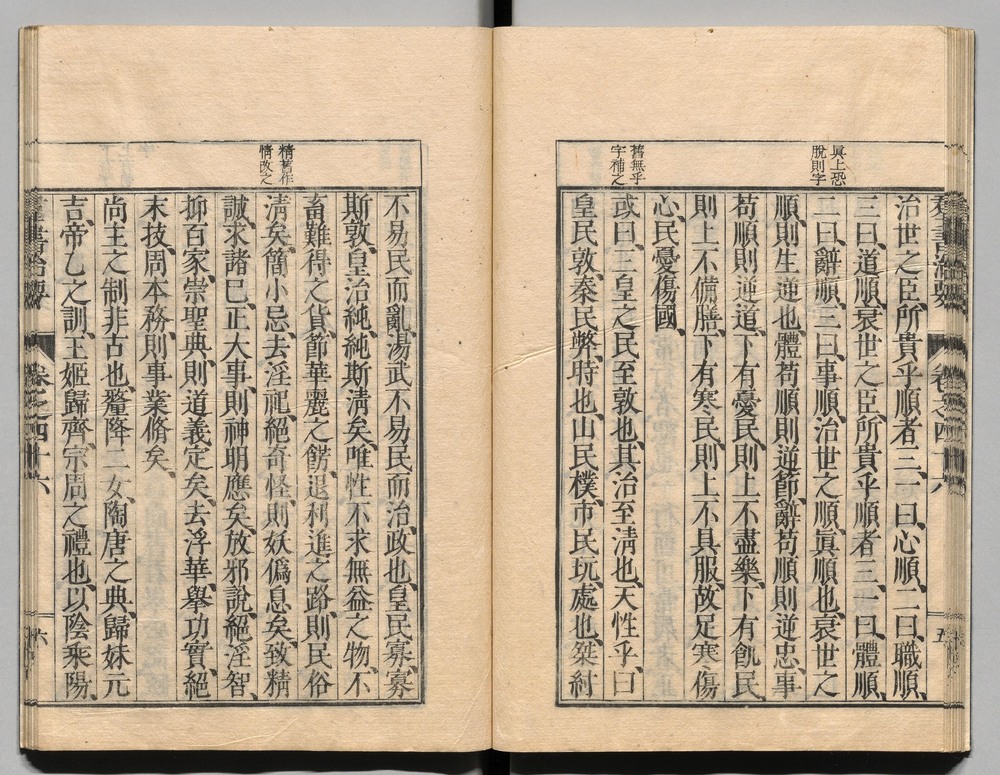 眞上恐
脫則字
舊無乎
字補之
治世之臣、所貴乎順者三、一曰、心順、二曰、職順、
三曰、道順、衰世之臣、所貴乎順者三、一曰、體順、
二曰、辭順、三曰、事順、治世之順、眞順也、衰世之
順、則生逆也、體苟順則逆節、辭苟順則逆忠、事
苟順則逆道、下有憂民、則上不盡樂、下有飢民、
則上不備膳、下有寒民、則上不具服、故足寒傷
心、民憂傷國、
或曰、三皇之民至敦也、其治至淸也、天性乎、曰
皇民敦、秦民弊、時也、山民樸、市民玩、處也、桀紂
五
精舊作
情改之
不易民而亂、湯武不易民而治、政也、皇民寡、寡
斯敦、皇治純、純斯淸矣、唯性不求無益之物、不
畜難得之貨、節華麗之餝、退利進之路、則民俗
淸矣、簡小忌、去淫祀、絕奇怪、則妖僞息矣、致精
誠、求諸己、正大事、則神明應矣、放邪說、絕淫智、
抑百家、崇聖典、則道義定矣、去浮華、舉功實、絕
末技、周本務、則事業脩矣、
尚主之制非古也、釐降二女、陶唐之典、歸妹元
吉、帝乙之訓、王姬歸齊、宗周之禮也、以陰乘陽、
羣書治要 卷之四十六 六